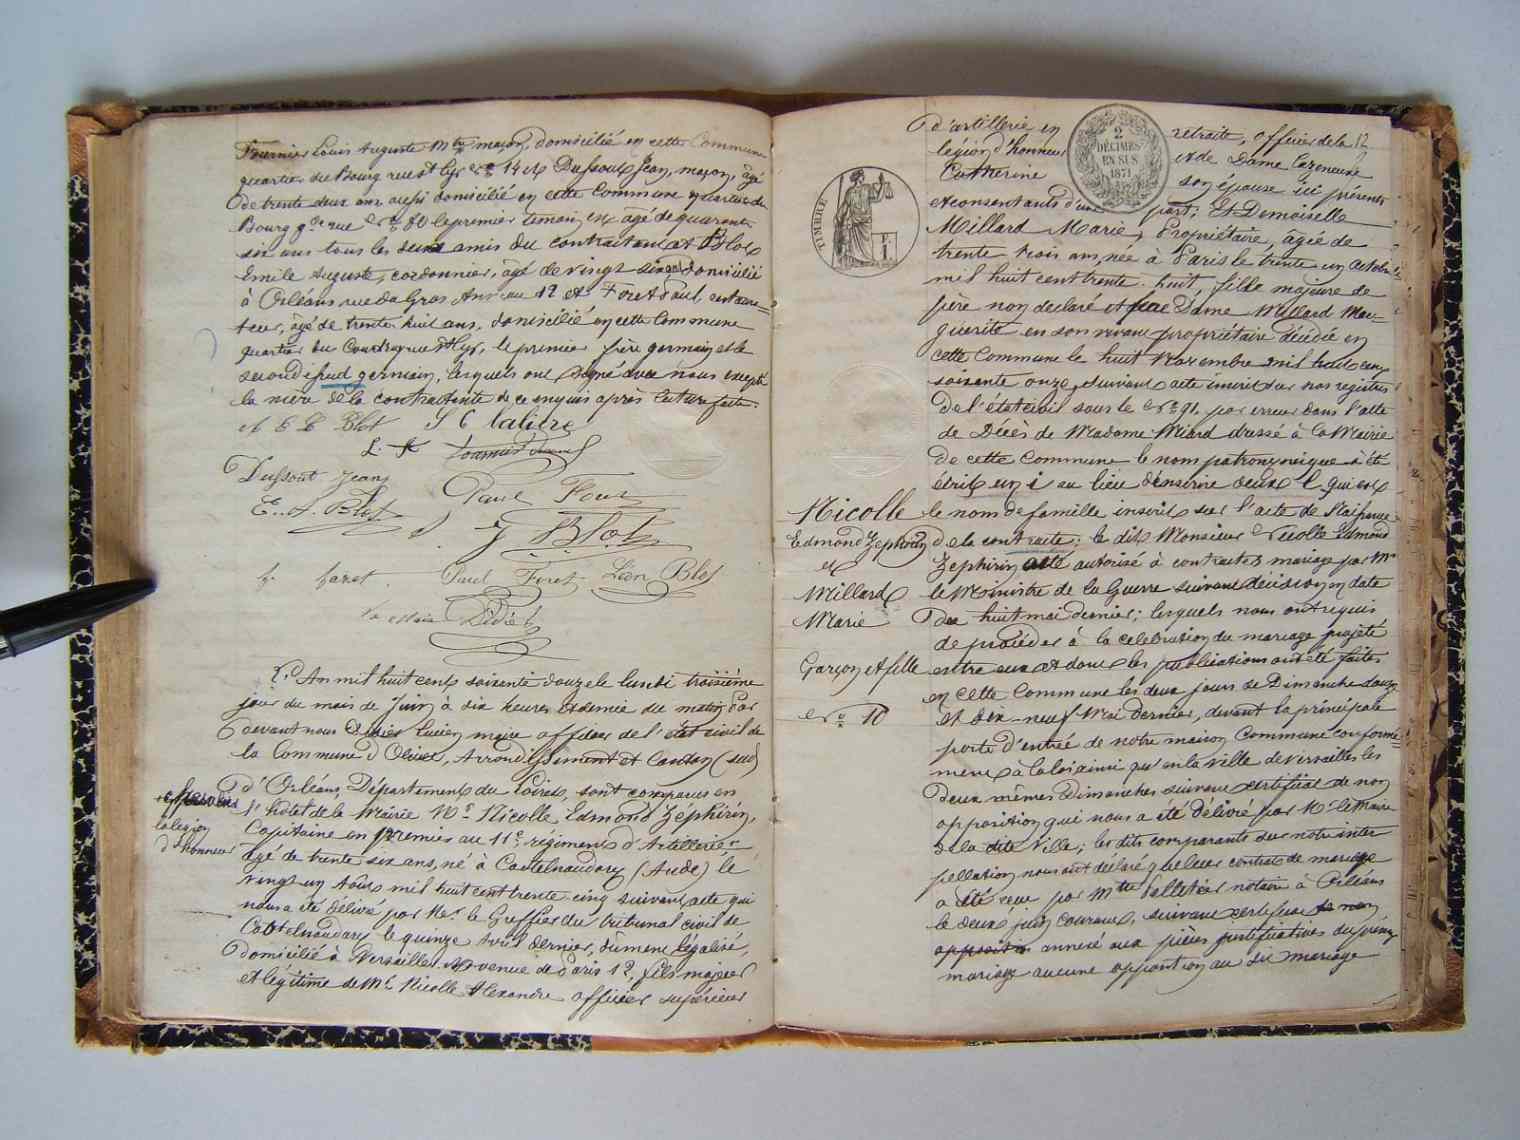 Fournier Louis Auguste Mtre maçon, domicilié en cette Commune
quartier du Bourg rue St Cyr No 14 et Dussout Jean, maçon, âgé
de trente deux ans aussi domicilié en cette Commune quartier du
Bourg gde rue No 80 le premier témoin, âgé de quarante
six ans tous les deux amis du contractant et Blot
Emile Auguste, cordonnier, âgé de vingt six ans domicilié
à Orléans rue du Gros Anneau 12 et Foret Paul,
âgé de trente huit ans, domicilié en cette Commune
quartier du Coudray rue St Cyr, le premier frère germain et le
second germain, lesquels ont signé avec nous excepté
la mère de la contractante de ce enquis après lecture faite.
Blot
L. F. Fournier
Dussout Jean
E. A. Blot
Paul Foret
J Blot
Paul Foret Léon Blot
Le Maire Didier
L'An mil huit cent soixante douze le lundi troisième
jour du mois de Juin à six heures et demie du matin, Par
devant nous Didier Lucien maire officier de l'état civil de
la Commune d'Olivet, Arrondissement et Canton (sud)
d'Orléans, Département du Loiret, sont comparus en
l'hôtel de la Mairie Mr Nicolle Edmond Zéphirin,
la légion
d'honneur
Capitaine en premier au 11e régiment d'Artillerie
âgé de trente six ans, né à Castelnaudary (Aude) le
vingt un Août mil huit cent trente cinq suivant acte qui
nous a été délivré par Mr le Greffier du tribunal civil de
Castelnaudary le quinze Avril dernier, dûment légalisé,
domicilié à Versailles Avenue de Paris 12, fils majeur
et légitime de Mr Nicolle Alexandre officier supérieur
d'artillerie en retraite, officier de la
légion d'honneur et de Dame Cazeneuve
Catherine son épouse ici présents
et consentants d'une part; Et Demoiselle
2
DÉCIMES
EN SUS
1871
TIMBRE
F.
1
Millard Marie, Propriétaire, âgée de
trente trois ans, née à Paris le trente un octobre
mil huit cent trente huit, fille majeure de
père non déclaré et de Dame Millard Mar-
guerite en son vivant propriétaire décédée en
cette Commune le huit Novembre mil huit cent
soixante onze, suivant acte inscrit sur nos registres
de l'état civil sous le No 91. par erreur dans l'acte
de Décès de Madame Miard dressé à la Mairie
de cette Commune le nom patronymique a été
écrit un i au lieu d'inscrire deux l qui est
le nom de famille inscrit sur l'acte de Naissance
de la contracte; le dit Monsieur Nicolle Edmond
Zephirin a été autorisé à contracter mariage par Mr
le Ministre de la Guerre suivant décision en date
du huit mai dernier; lesquels nous ont requis
de procéder à la célébration du mariage projeté
entre eux et dont les publications ont été faites
en cette Commune les deux jours de Dimanche douze
et dix-neuf Mai dernier, devant la principale
porte d'entrée de notre maison Commune conformé=
ment à la loi ainsi qu'en la ville de Versailles les
deux mêmes Dimanches suivant certificat de non
opposition qui nous a été délivré par Mr le Maire
de la dite Ville; les dits comparants sur notre inter
pellation nous ont déclaré que leur contrat de mariage
a été reçu par Mtre Pelletier notaire à Orléans
le deux juin courant, suivant certificat de non
opposition annexé aux pièces justificatives du présent
mariage aucune opposition au dit mariage
Nicolle
Edmond Zephirin
et
Millard
Marie
Garçon et fille
No 10